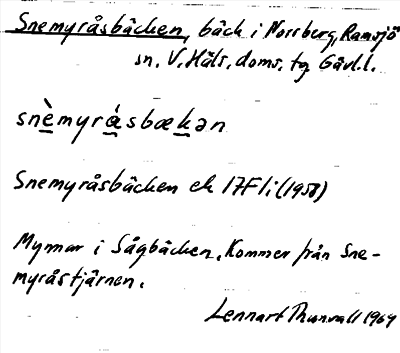 Snemyråsbäcken, bäck i Norrberg, Ramsjö
sn. V. Häls. doms. tg Gävl. l.
snèmyrásbækən
Snemyråsbäcken ek 17F1i (1958)
Mynnar i Sågbäcken. Kommer från Sne-
myråstjärnen.
Lennart Thunvall 1969